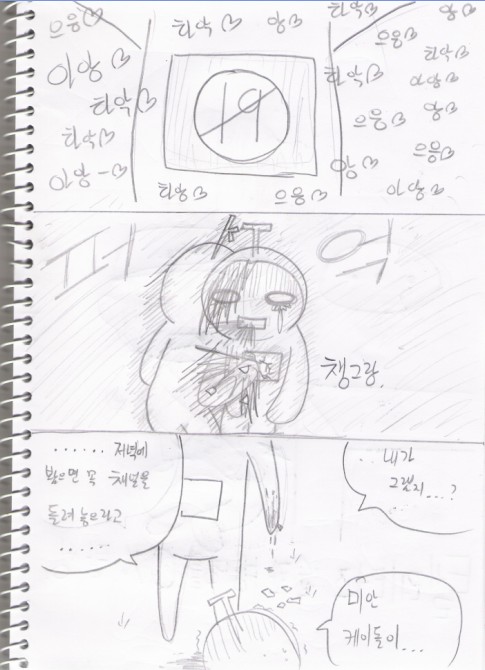 으응♡
하악♡
앙♡
하악♡
앙♡
으응♡
하악♡
아앙♡
아앙♡
하악♡
하악♡
앙♡
하악♡
으응♡
으응♡
아앙-♡
앙♡
아앙♡
하악♡
으응♡
19
끄어억
챙그랑.
...... 저녁에
봤으면 꼭 채널을
돌려 놓으라고
......
..내가
그랬지...?
미안
케이들이...